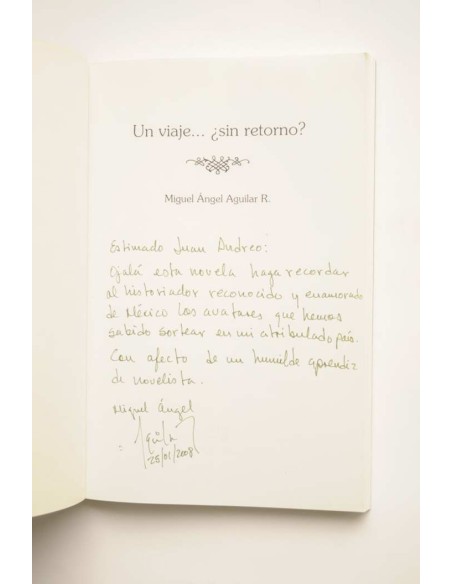 Un viaje... ¿sin retorno?
Miguel Ángel Aguilar R.
Estimado Juan Andreo:
Ojalá esta novela haga recordar
al historiador reconocido y enamorado
de México los avatares que hemos
sabido sortear en mi atribulado país.
Con afecto de un humilde aprendiz
de novelista.
Miguel Ángel
28/01/2008